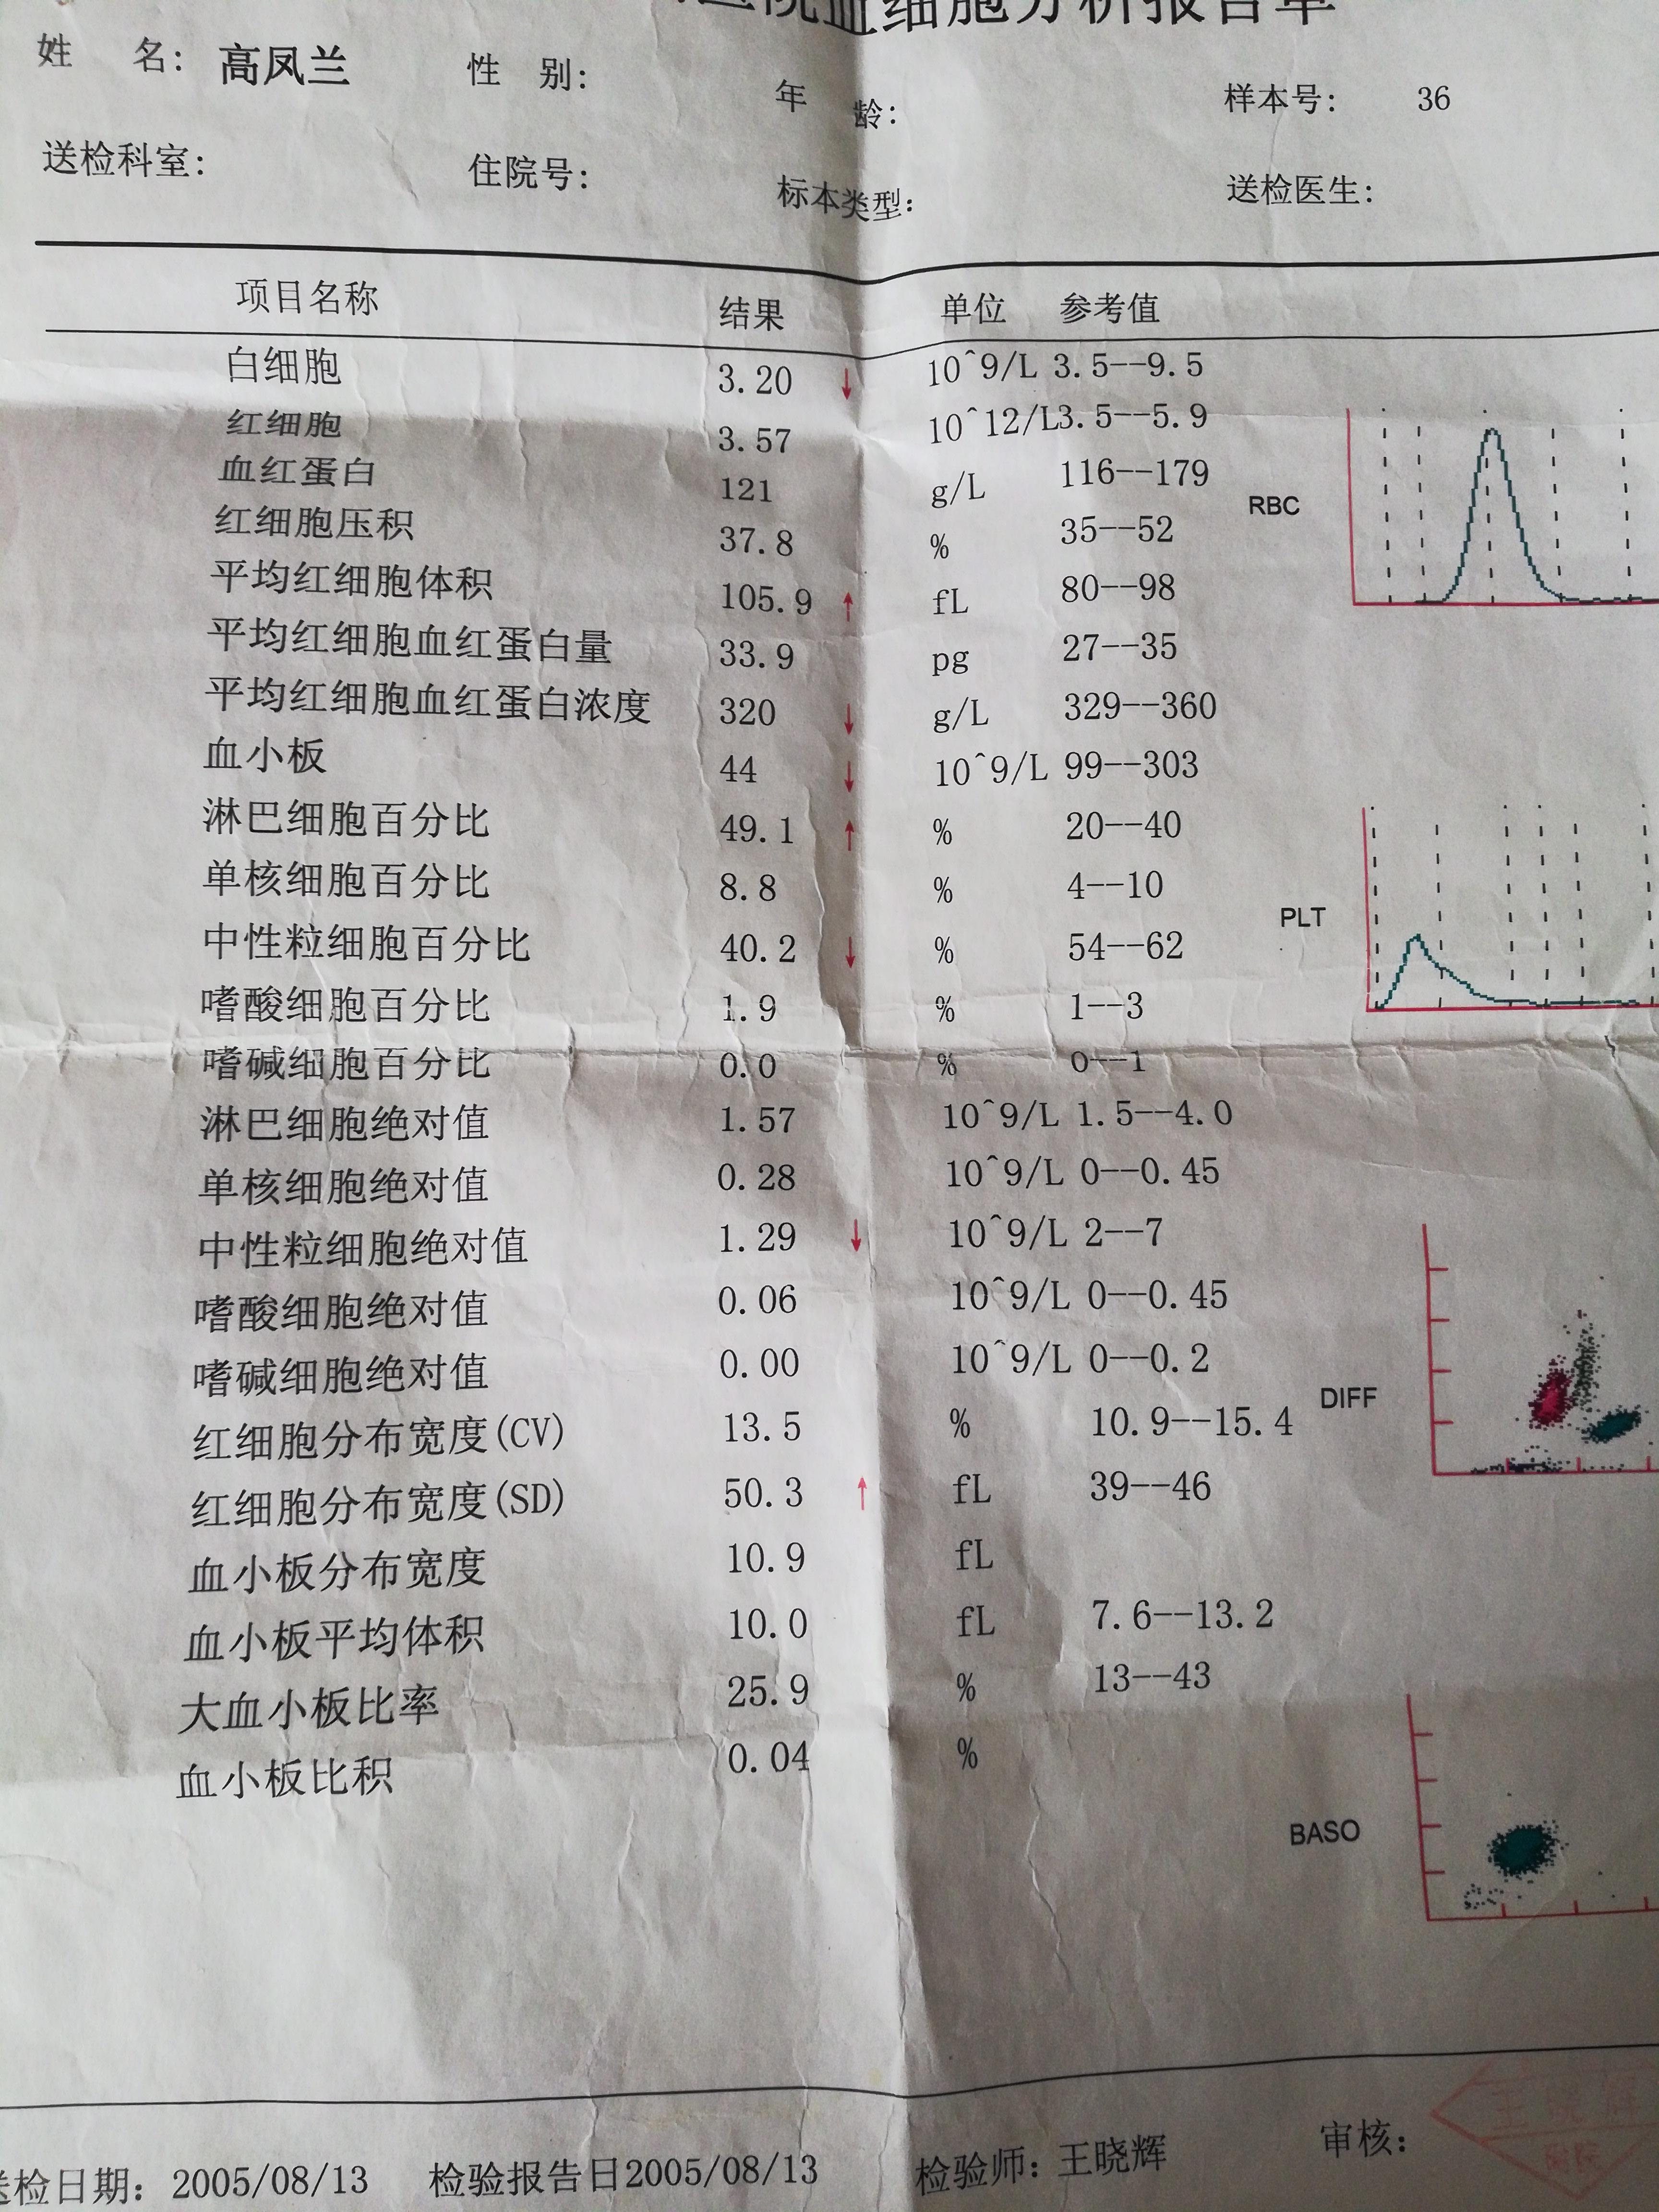 医院血细胞分析报告单
姓 名: 高凤兰 性 别: 年 龄: 样本号: 36
送检科室: 住院号: 标本类型: 送检医生:
项目名称 结果 单位 参考值
白细胞 3.20 ↓ 10^9/L 3.5--9.5
红细胞 3.57 10^12/L 3.5--5.9
血红蛋白 121 g/L 116--179
RBC
红细胞压积 37.8 % 35--52
平均红细胞体积 105.9 ↑ fL 80--98
平均红细胞血红蛋白量 33.9 pg 27--35
平均红细胞血红蛋白浓度 320 ↓ g/L 329--360
血小板 44 ↓ 10^9/L 99--303
淋巴细胞百分比 49.1 ↑ % 20--40
单核细胞百分比 8.8 % 4--10
PLT
中性粒细胞百分比 40.2 ↓ % 54--62
嗜酸细胞百分比 1.9 % 1--3
嗜碱细胞百分比 0.0 % 0--1
淋巴细胞绝对值 1.57 10^9/L 1.5--4.0
单核细胞绝对值 0.28 10^9/L 0--0.45
中性粒细胞绝对值 1.29 ↓ 10^9/L 2--7
嗜酸细胞绝对值 0.06 10^9/L 0--0.45
嗜碱细胞绝对值 0.00 10^9/L 0--0.2
DIFF
红细胞分布宽度(CV) 13.5 % 10.9--15.4
红细胞分布宽度(SD) 50.3 ↑ fL 39--46
血小板分布宽度 10.9 fL
血小板平均体积 10.0 fL 7.6--13.2
大血小板比率 25.9 % 13--43
血小板比积 0.04 %
BASO
送检日期: 2005/08/13 检验报告日2005/08/13 检验师: 王晓辉 审核: